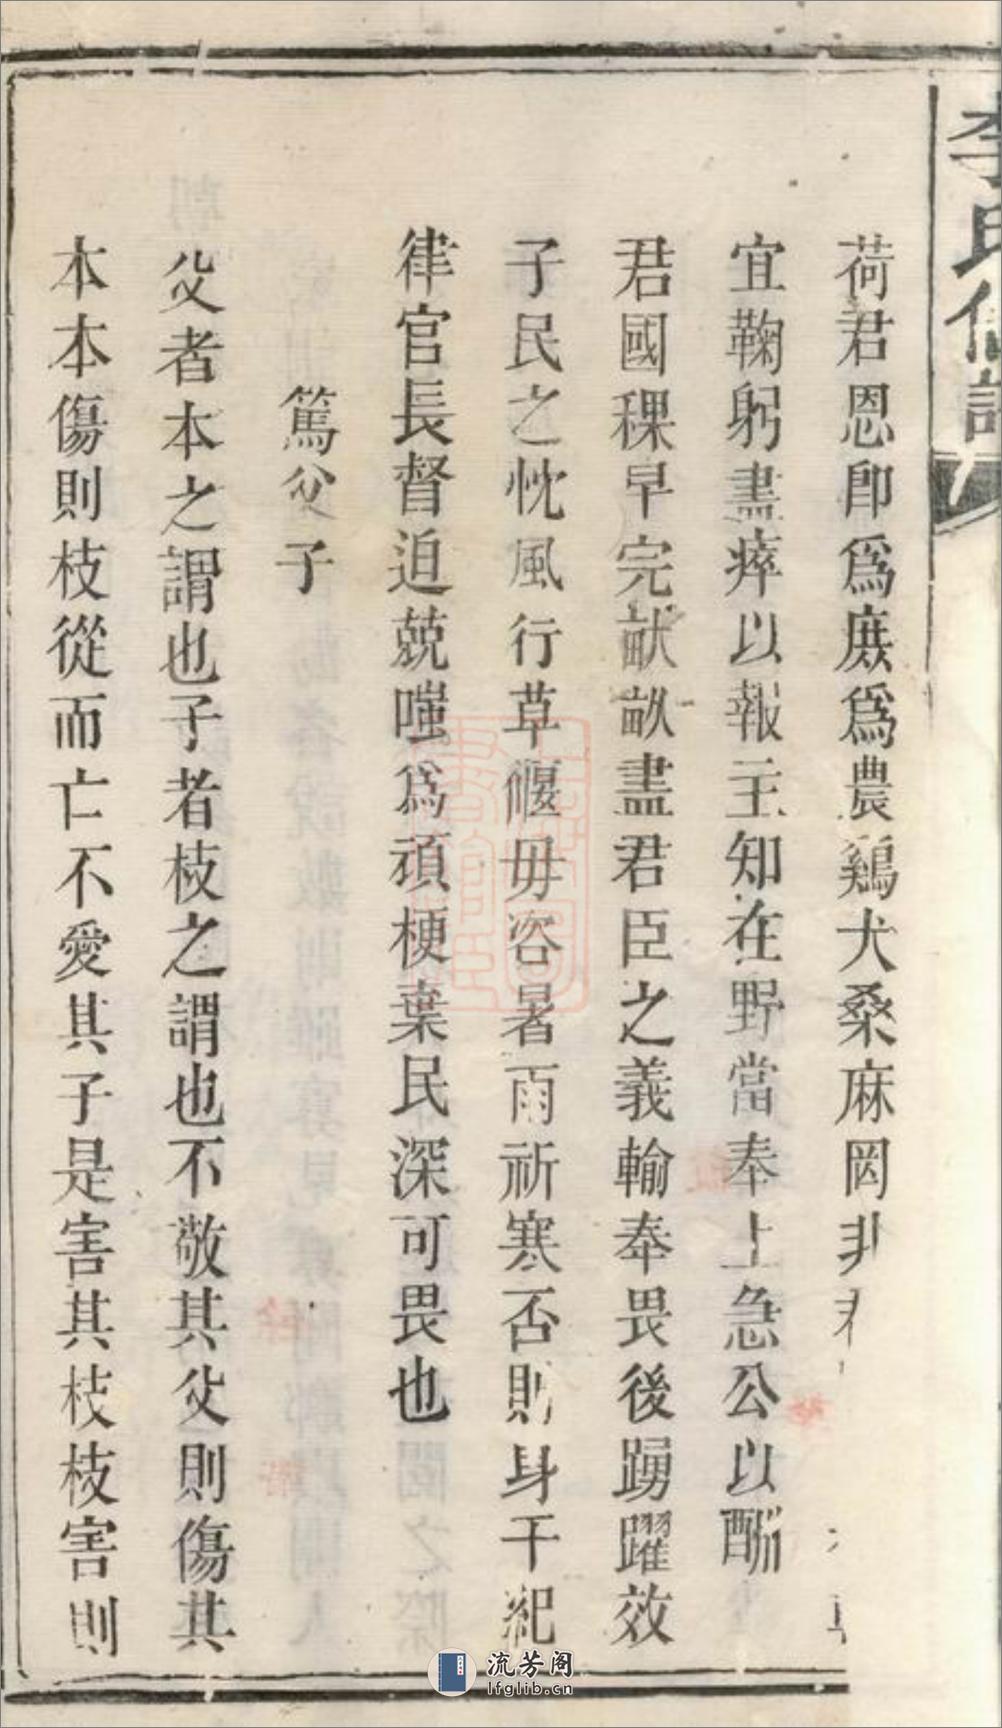 李氏
荷君恩即爲庶爲農鷄犬桑麻罔非
宜鞠躬盡瘁以報主知在野當奉上急公以酬
君國稞早完猷畝盡君臣之義輸奉畏後踴躍效
子民之忱風行草偃毋咨暑雨祈寒否則身干紀
律官長督迫兢嗤爲頑梗棄民深可畏也
篤父子
父者本之謂也子者枝之謂也不敬其父則傷其
本本傷則枝從而亡不愛其子是害其枝枝害則
流芳阁
lfglib.cn